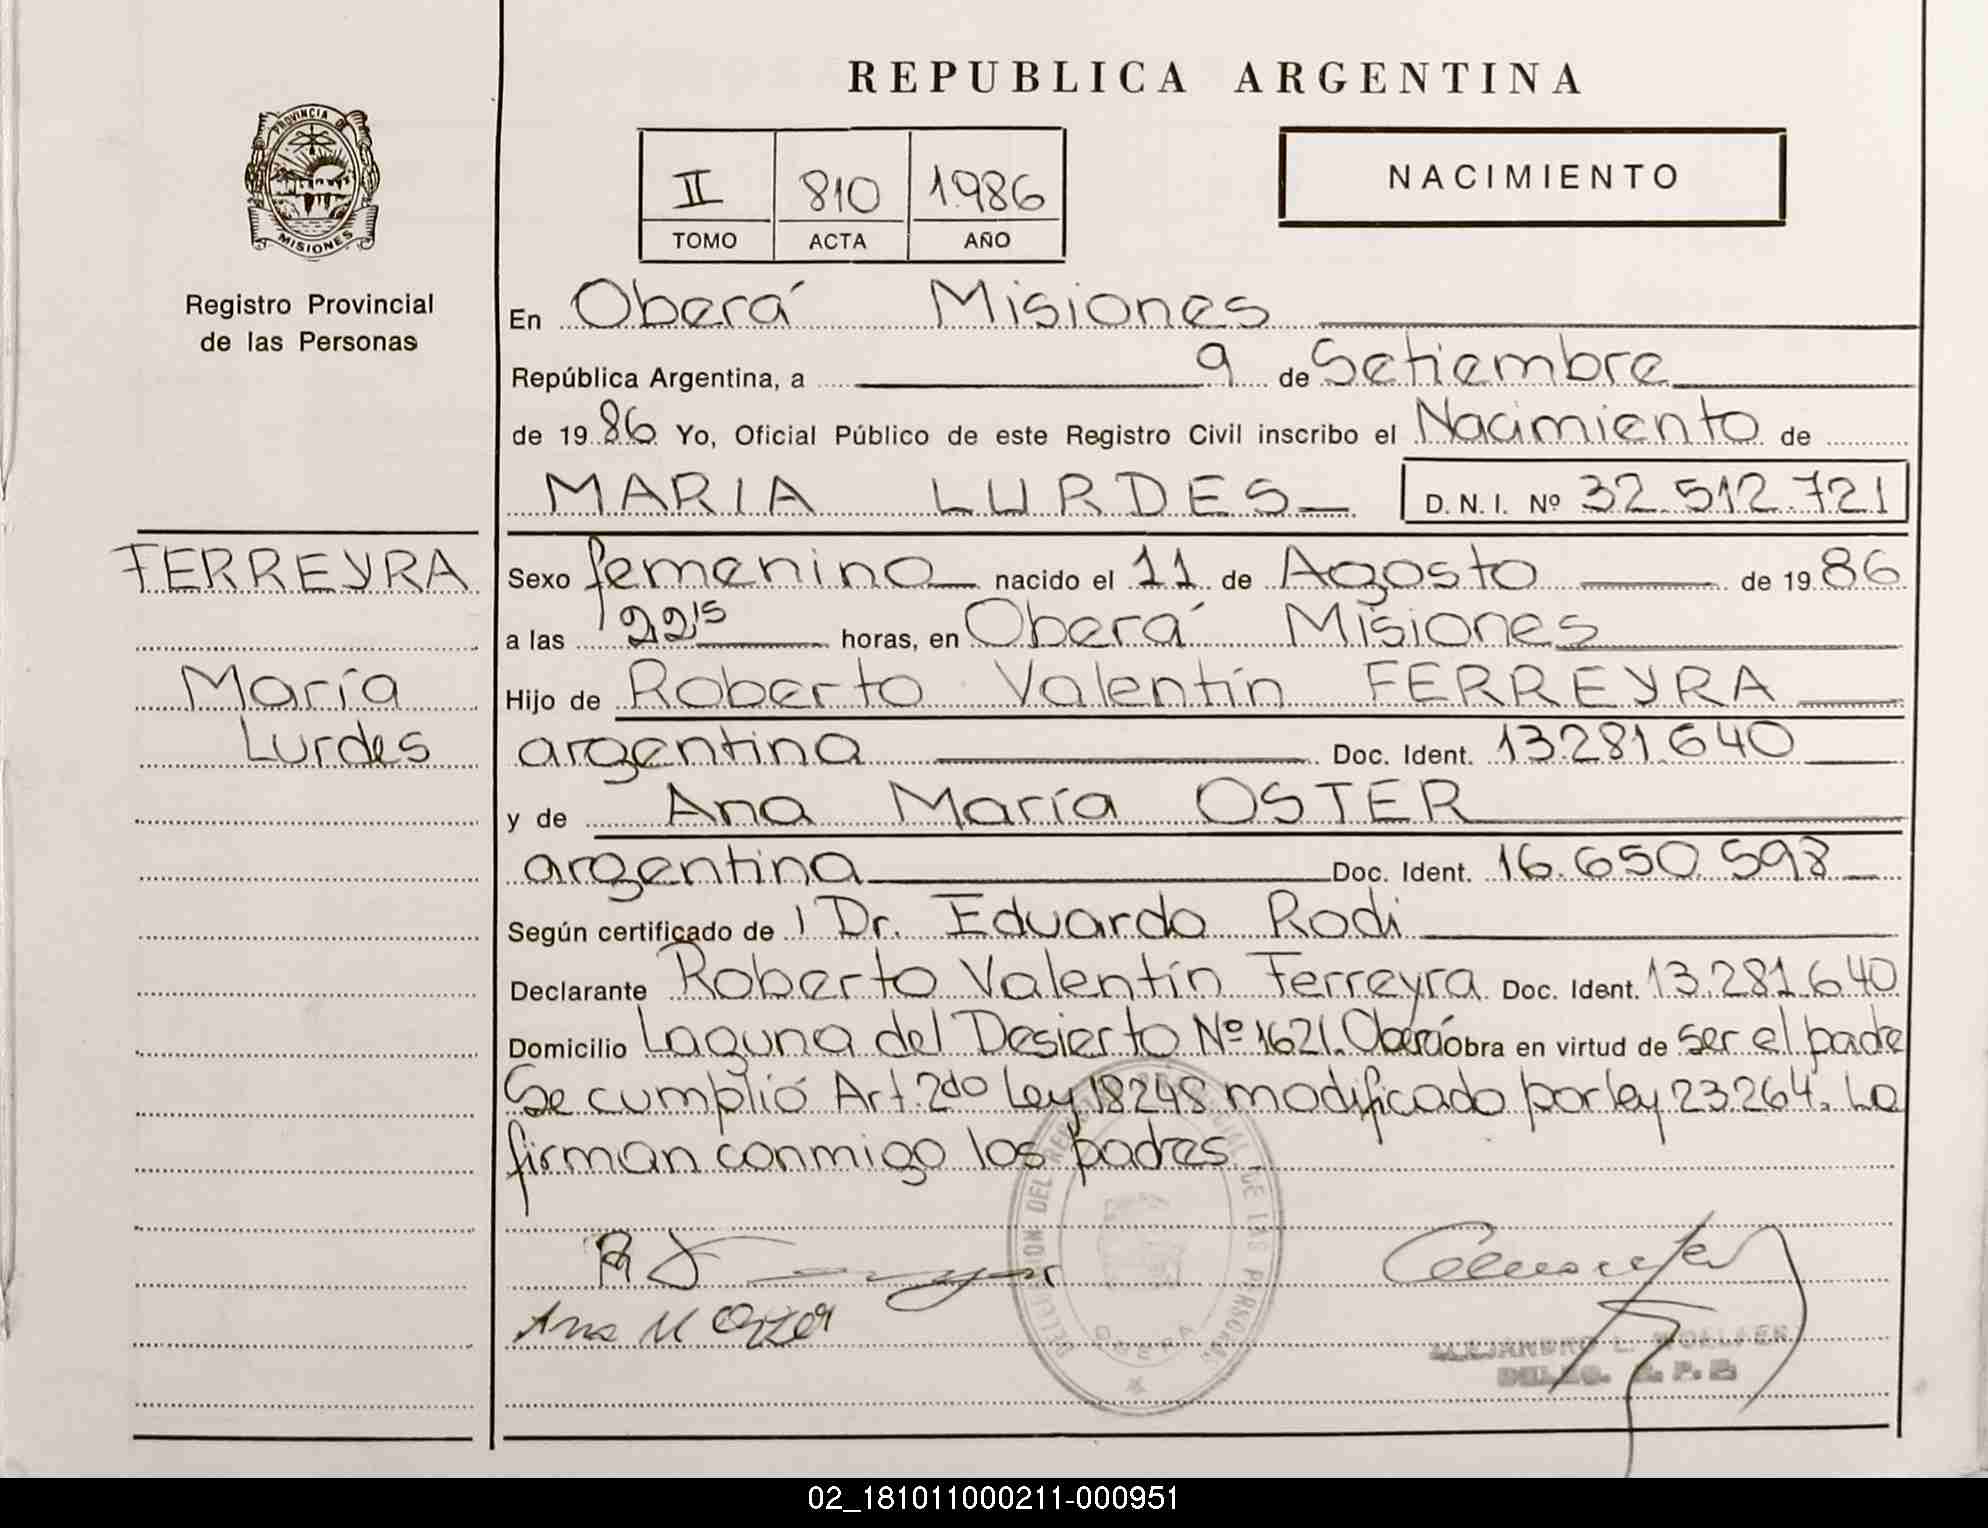 REPUBLICA ARGENTINA
PROVINCIA DE
MISIONES
Registro Provincial
de las Personas
II 810 1986
TOMO ACTA AÑO
NACIMIENTO
En Oberá Misiones
República Argentina, a 9 de Setiembre
de 1986 Yo, Oficial Público de este Registro Civil inscribo el Nacimiento de
MARIA LURDES D. N. I. Nº 32.512.721
FERREYRA
María
Lurdes
Sexo femenino nacido el 11 de Agosto de 1986
a las 22,15 horas, en Oberá Misiones
Hijo de Roberto Valentín FERREYRA
argentina Doc. Ident. 13.281.640
y de Ana María OSTER
argentina Doc. Ident. 16.650.598
Según certificado de Dr. Eduardo Rodi
Declarante Roberto Valentín Ferreyra Doc. Ident. 13.281.640
Domicilio Laguna del Desierto Nº 1621. Oberá obra en virtud de ser el padre
Se cumplió Art. 2do Ley 18248 modificado por ley 23.264. La
firman conmigo los padres
DEL REGISTRO PROVINCIAL DE LAS PERSONAS
OBERA
Ana M Oster
ALEJANDRO L.
02_181011000211-000951